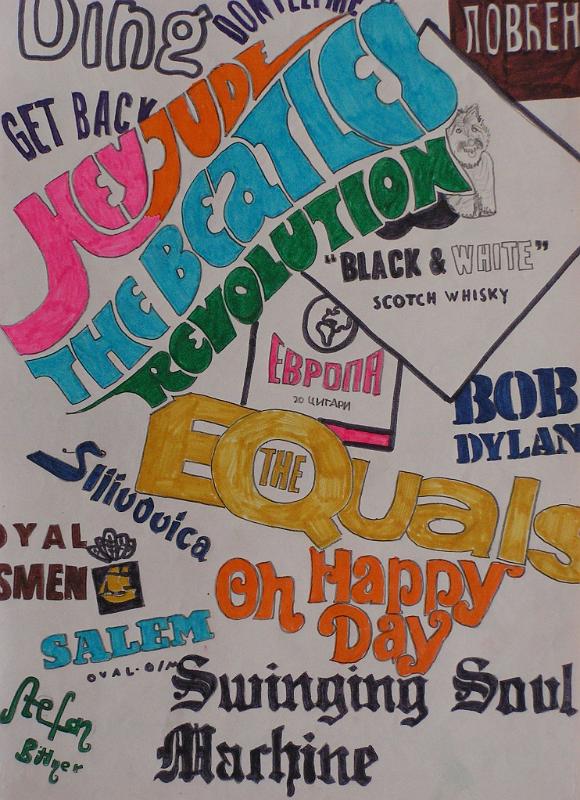 Ding
DON'T LET ME
ЛОВЋЕН
GET BACK
HEY JUDE
THE BEATLES
REVOLUTION
"BLACK & WHITE"
SCOTCH WHISKY
ЕВРОПА
20 ЦИГАРИ
BOB
DYLAN
THE
EQuals
Sllivovica
OYAL
SMEN
Oh Happy
Day
SALEM
OVAL-O/M
Swinging Soul
Machine
Stefan
Bittner